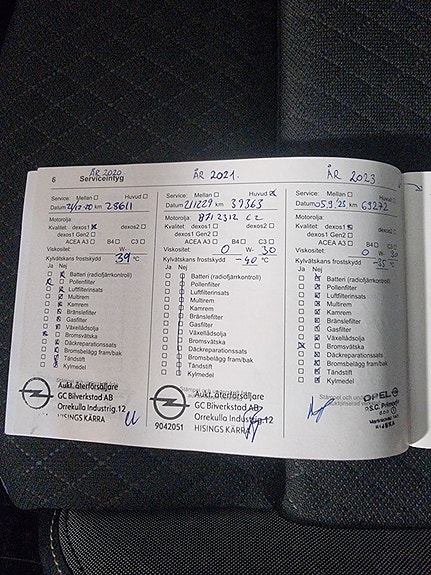 6
Serviceintyg
ÅR 2020
Service: Mellan Huvud
Datum 21/12-20 km 28611
Motorolja:
Kvalitet: dexos1 dexos2
dexos1 Gen2
ACEA A3 B4 C3
Viskositet: W-
Kylvätskans frostskydd
39 °C
Ja Nej
Batteri (radiofjärrkontroll)
Pollenfilter
Luftfilterinsats
Multirem
Kamrem
Bränslefilter
Gasfilter
Växellådsolja
Bromsvätska
Däckreparationssats
Bromsbelägg fram/bak
Tändstift
Kylmedel
Aukt. återförsäljare
GC Bilverkstad AB
Orrekulla Industrig.12
HISINGS KÄRRA
ÅR 2021.
Service: Mellan Huvud
Datum 211229 km 39363
Motorolja: 8712312 C2
Kvalitet: dexos1 dexos2
dexos1 Gen2
ACEA A3 B4 C3
Viskositet: 0 W- 30
Kylvätskans frostskydd
-40 °C
Ja Nej
Batteri (radiofjärrkontroll)
Pollenfilter
Luftfilterinsats
Multirem
Kamrem
Bränslefilter
Gasfilter
Växellådsolja
Bromsvätska
Däckreparationssats
Bromsbelägg fram/bak
Tändstift
Kylmedel
Aukt. återförsäljare
GC Bilverkstad AB
Orrekulla Industrig.12
9042051 HISINGS KÄRRA
ÅR 2023
Service: Mellan Huvud
km 69272
Motorolja:
Kvalitet: dexos1 dexos2
dexos1 Gen2
ACEA A3 B4 C3
Viskositet: 0 W- 30
Kylvätskans frostskydd
-35 °C
Ja Nej
Batteri (radiofjärrkontroll)
Pollenfilter
Luftfilterinsats
Multirem
Kamrem
Bränslefilter
Gasfilter
Växellådsolja
Bromsvätska
Däckreparationssats
Bromsbelägg fram/bak
Tändstift
Kylmedel
Stämpel och
OPEL